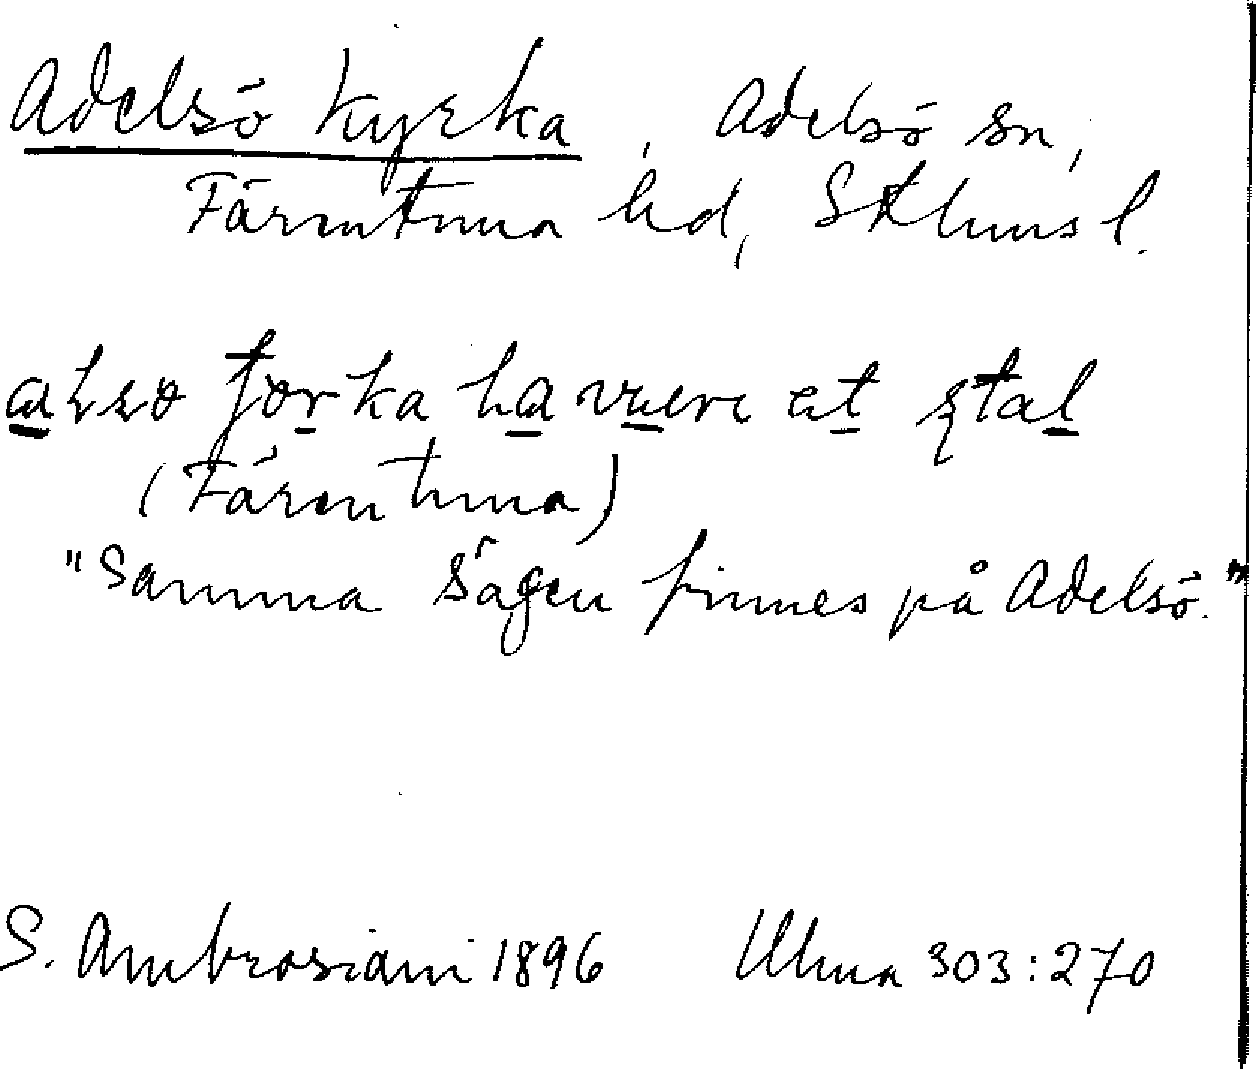 Adelsö kyrka, Adelsö sn,
Färentuna hd, Sthlms l.
ha et stal
(Färentuna)
"Samma sägen finnes på Adelsö."
S. Ambrosiani 1896 Uluna 303:270